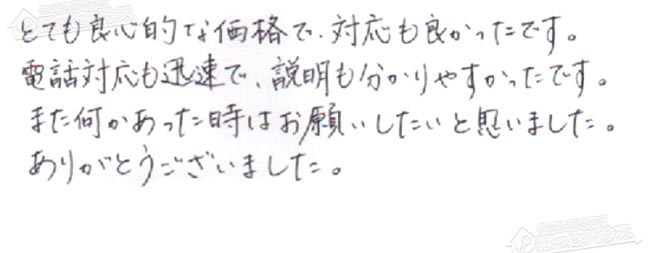 とても良心的な価格で、対応も良かったです。
電話対応も迅速で、説明も分かりやすかったです。
また何かあった時はお願いしたいと思いました。
ありがとうございました。